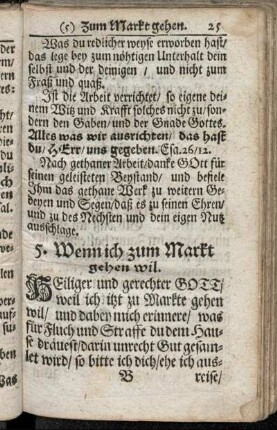 (5) Zum Markt gehen. 25
Was du redlicher weyse erworben hast/
das lege bey zum nöhtigen Unterhalt dein
selbst und der deinigen / und nicht zum
Fraß und quaß.
Ist die Arbeit verrichtet/ so eigne deinem Witz und Krafft solches nicht zu/sondern den Gaben/ und der Gnade Gottes.
Alles was wir ausrichten/ das hast
du/ HErr/ uns gegeben. Esa.26/12.
Nach gethaner Arbeit/danke GOtt für
seinen geleisteten Beystand/ und befele
Ihm das gethane Werk zu weitern Gedeyen und Segen/daß es zu seinen Ehren/
und zu des Nechsten und dein eigen Nutz
ausschlage.
5. Wenn ich zum Markt
gehen wil.
HEiliger und gerechter GOTT/
weil ich itzt zu Markte gehen
wil/ und dabey mich erinnere/ was
für Fluch und Straffe du dem Hause dräuest/darin unrecht Gut gesamlet wird/ so bitte ich dich/ehe ich aus-
B reise/